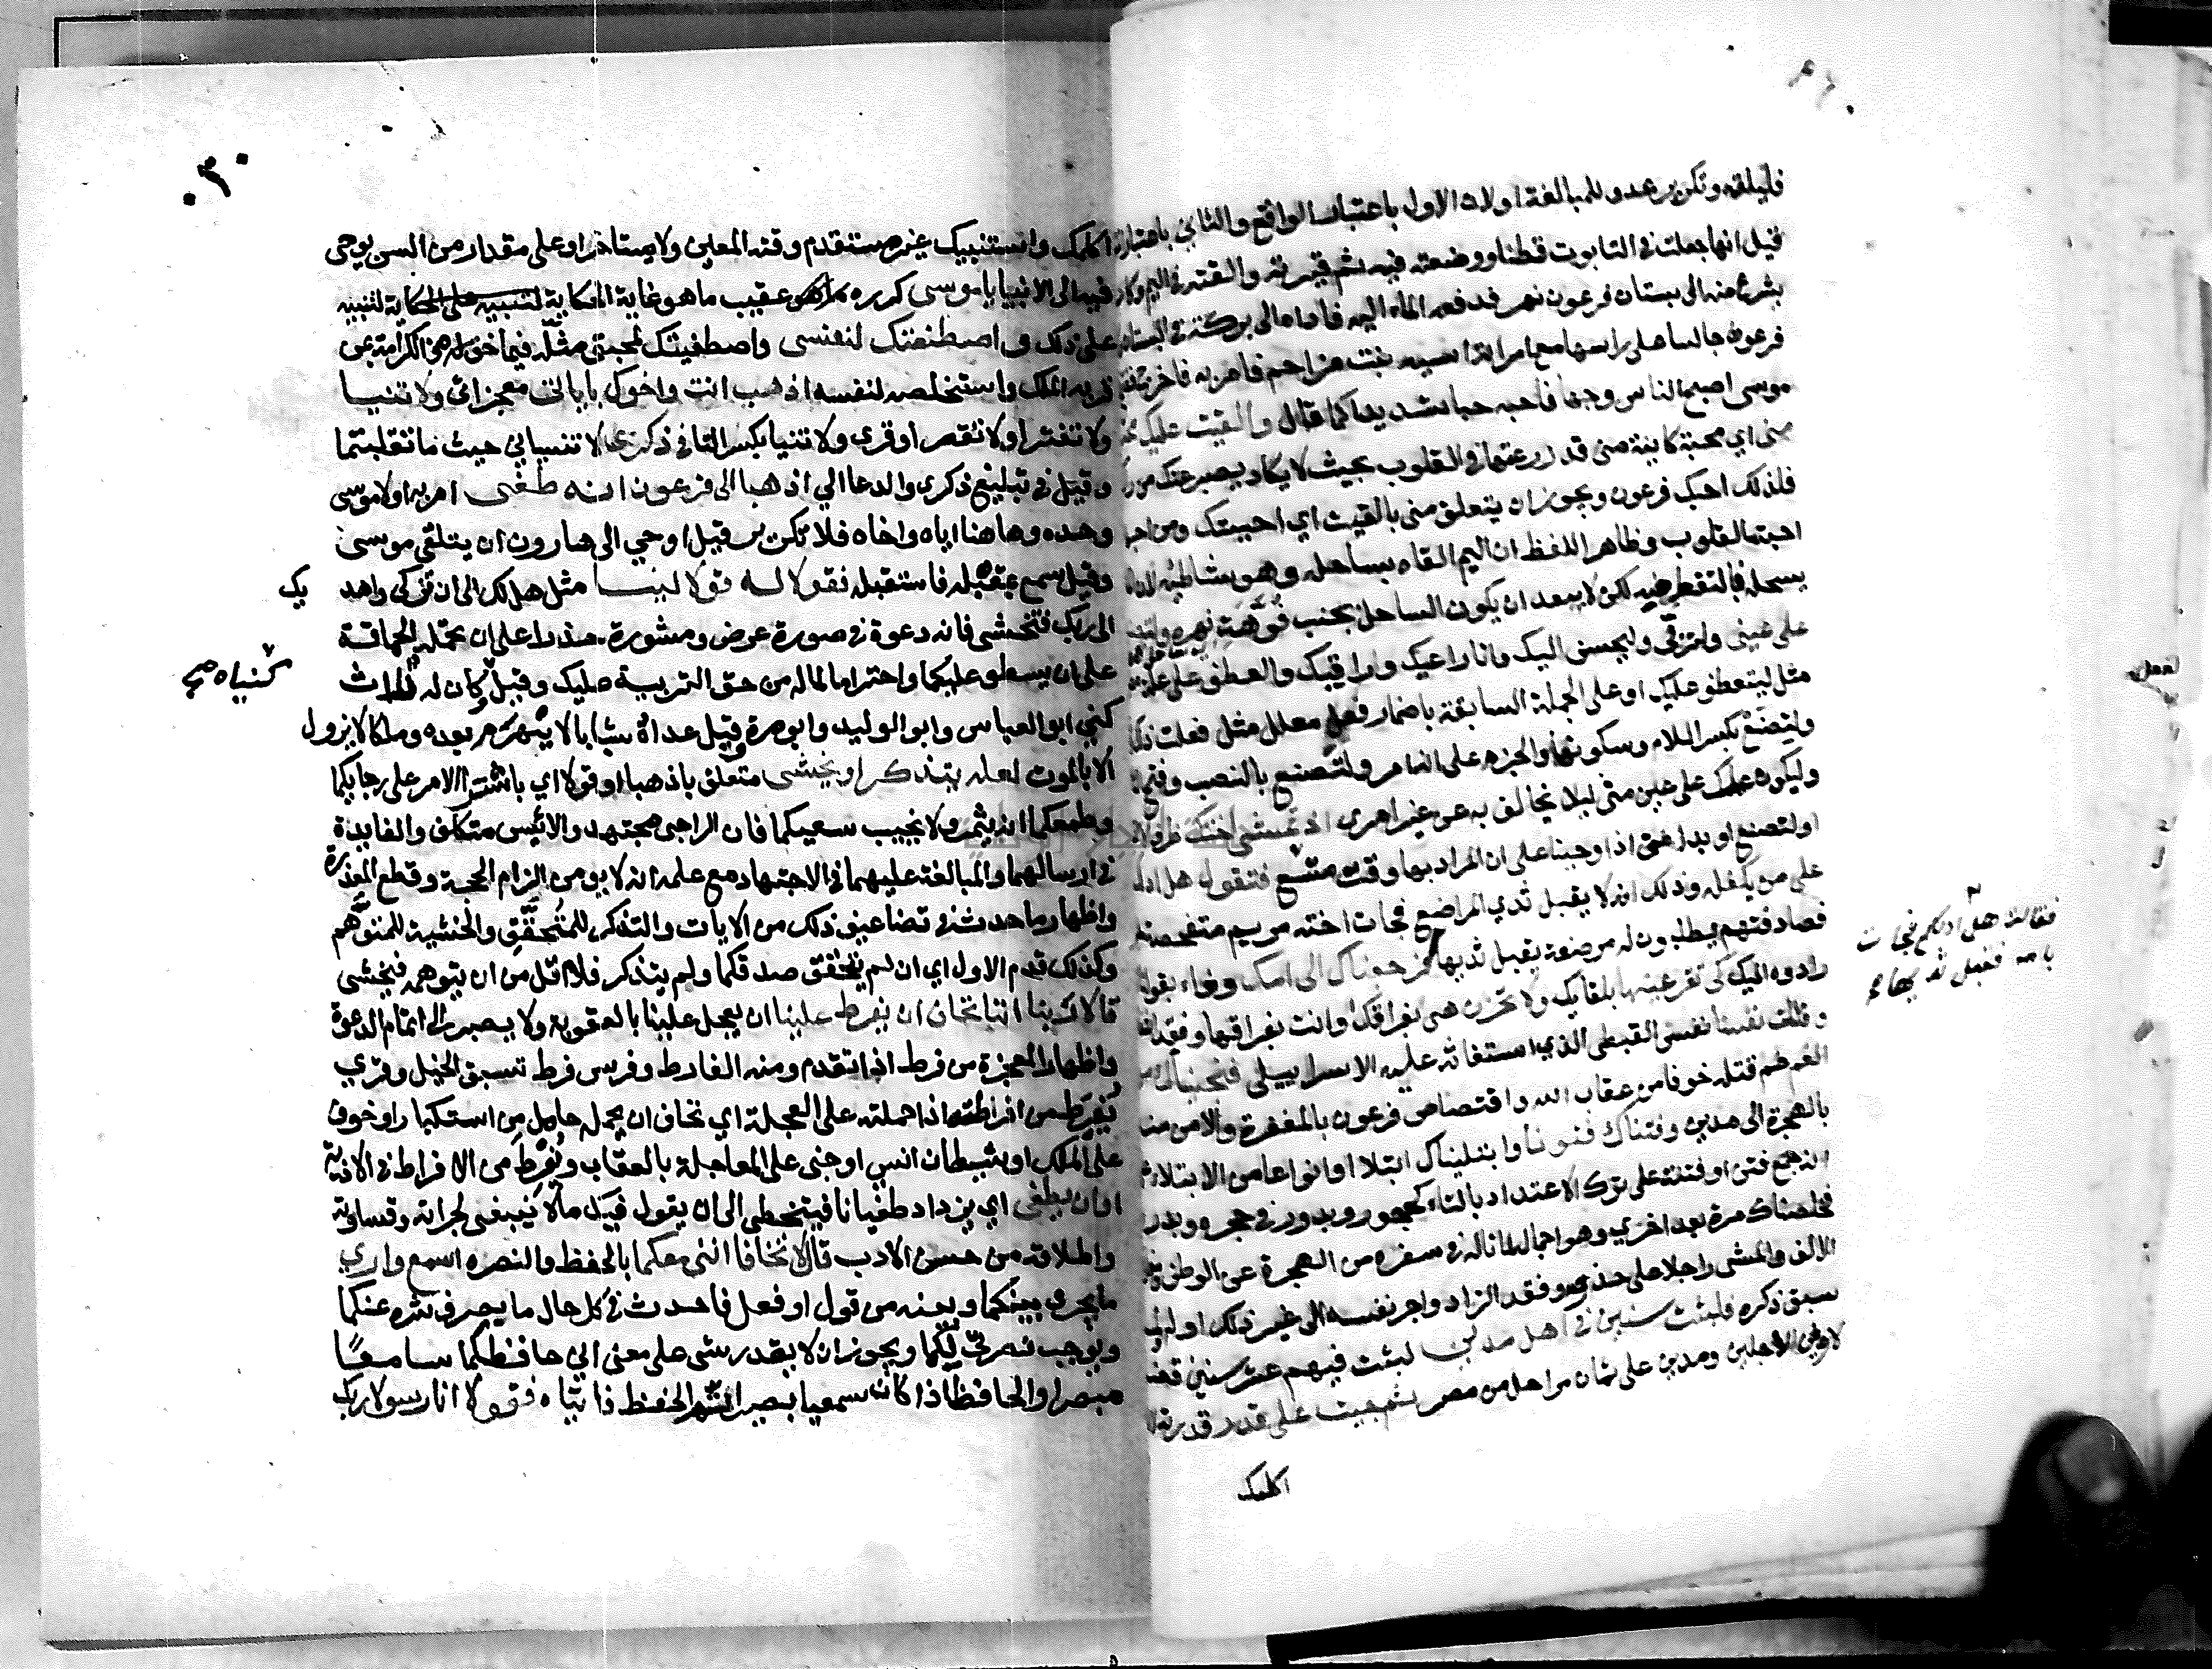 فليلقه وتكرير عدو للمبالغة او لان الاول باعتبار الواقع والثاني باعتبار
قيل انها جعلت في التابوت قطنا ووضعته فيه ثم قيرته والقته في اليم وكان
يشرع منه الى بستان فرعون نهر فدفعه الماء اليه فاداه الى بركة في البستان
فرعون جالسا على راسها مع امراته اسيه بنت مزاحم فامر به فاخرج
موسى اصبح الناس وجها فاحبه حبا شديدا كما قال والقيت عليك
منى اي محبة كاينة منى قد زرعتها في القلوب بحيث لا يكاد يصبر عنك من
فلذلك احبك فرعون ويجوز ان يتعلق منى بالقيت اي احببتك ومن
احبته القلوب وظاهر اللفظ ان اليم القاه بساحله وهو شاطئه
يسحله فالتقط منه لكن لا يبعد ان يكون الساحل بجنب فوهة نهره ولتصنع
على عينى ولتربى وليحسن اليك وانا راعيك وراقبك والعطف على علة
مثل ليتعطف عليك او على الجملة السابقة باضمار فعل معلل مثل فعلت ذلك
ولتصنع بكسر اللام وسكونها والجزم على انه امر ولتصنع بالنصب وفتح
وليكون عملك على عين منى ليلا تخالف به عن غير امرى اذ تمشى اختك ظرف
او لتصنع او بدل من اذ اوحينا على ان المراد بها وقت متسع فتقول هل ادلكم
على من يكفله وذلك انه لا يقبل ثدي المراضع فجات اخته مريم متفحصة
فصادفتهم يطلبون له مرضعة يقبل ثديها فرجعناك الى امك وفاء بقولنا
رادوه اليك كى تقر عينها بلقايك ولا تحزن هى بفراقك او انت بفراقها وفقد
وقتلت نفسا نفس القبطى الذي استغاثه عليه الاسراييلى فنجيناك من
الغم غم قتله خوفا من عقاب الله واقتصاص فرعون بالمغفرة والامن منه
بالهجرة الى مدين وفتناك فتونا وابتليناك ابتلا او انواعا من الابتلا
انه جمع فتن او فتنة على ترك الاعتداد بالتاء كحجور وبدور في حجرة وبدرة
فخلصناك مرة بعد اخرى وهو اجمال لما ناله في سفره من الهجرة عن الوطن
الالاف والمشى راجلا على حذر وفقد الزاد واجر نفسه الى غير ذلك او له
سبق ذكره فلبثت سنين في اهل مدين لبثت فيهم عشر سنين قضا
لاوفى الاجلين ومدين على ثمان مراحل من مصر ثم جيت على قدر قدرته
اكلمك
فقالت هل ادلكم فجات
بامه فقبل ثديها
٣٠
اكلمك واستنبيك غير مستقدم وقته المعين ولا مستاخر او على مقدار من السن يوحى
فيه الى الانبيا يا موسى كرره عقيب ما هو غاية الحكاية للتنبيه
على ذلك واصطنعتك لنفسى واصطفيتك لمحبتي مثله فيما خوله من الكرامة بمن
قربه الملك واستخلصه لنفسه اذهب انت واخوك باياتى معجزاتى ولا تنيا
ولا تفترا ولا تقصرا وقرى ولا تنيا بكسر التا فى ذكرى لا تنسياني حيث ما تقلبتما
وقيل في تبليغ ذكرى والدعا الي اذهبا الى فرعون انه طغى امر به اولا موسى
وحده وهاهنا اياه واخاه فلا تكرير قيل اوحي الى هارون ان يتلقى موسى
وقيل سمع بمقبله فاستقبله فقولا له قولا لينا مثل هل لك الى ان تزكى واهديك
الى ربك فتخشى فانه دعوة في صورة عرض ومشورة حذرا على ان تحمله الحماقة
على ان يسطو عليكما واحتراما لما له من حق التربية عليك وقيل كنياه وكان له ثلاث
كنياه صح
كنى ابو العباس وابو الوليد وابو مرة وقيل عداه شبابا لا يهرم بعده وملكا لا يزول
الا بالموت لعله يتذكر او يخشى متعلق باذهبا او قولا اي باشرا الامر على رجايكما
وطمعكما انه يثمر ولا يخيب سعيكما فان الراجى مجتهد والايس متكلف والفايدة
في ارسالهما والمبالغة عليهما في الاجتهاد مع علمه انه لا يومن الزام الحجة وقطع المعذرة
واظهار ما حدث في تضاعيف ذلك من الايات والتذكر للمتحقق والخشية للمتوهم
وكذلك قدم الاول اي ان لم يتحقق صدقكما ولم يتذكر فلا اقل من ان يتوهمه فيخشى
قالا ربنا اننا نخاف ان يفرط علينا ان يعجل علينا بالعقوبة ولا يصبر الى اتمام الدعوة
واظهار المعجزة من فرط اذا تقدم ومنه الفارط وفرس فرط تسبق الخيل وقري
يفرط من افرطته اذا حملته على العجلة اي نخاف ان يحمله حامل من استكبار او خوف
على الملك او شيطان انسي او جنى على المعاجلة بالعقاب ويفرط من الافراط في الاذية
او ان يطغى اي يزداد طغيانا فيتخطى الى ان يقول فيك ما لا ينبغى لجراته وقساوته
واطلاقه من حسن الادب قال لا تخافا اننى معكما بالحفظ والنصره اسمع وارى
ما يجرى بينكما وبينه من قول او فعل فاحدث في كل حال ما يصرف شره عنكما
ويوجب نصرتى لكما ويجوز ان لا يقدر شى على معنى اني حافظكما سامعا
مبصرا والحافظ اذا كان سميعا بصيرا تم الحفظ فاتياه فقولا انا رسولا ربك